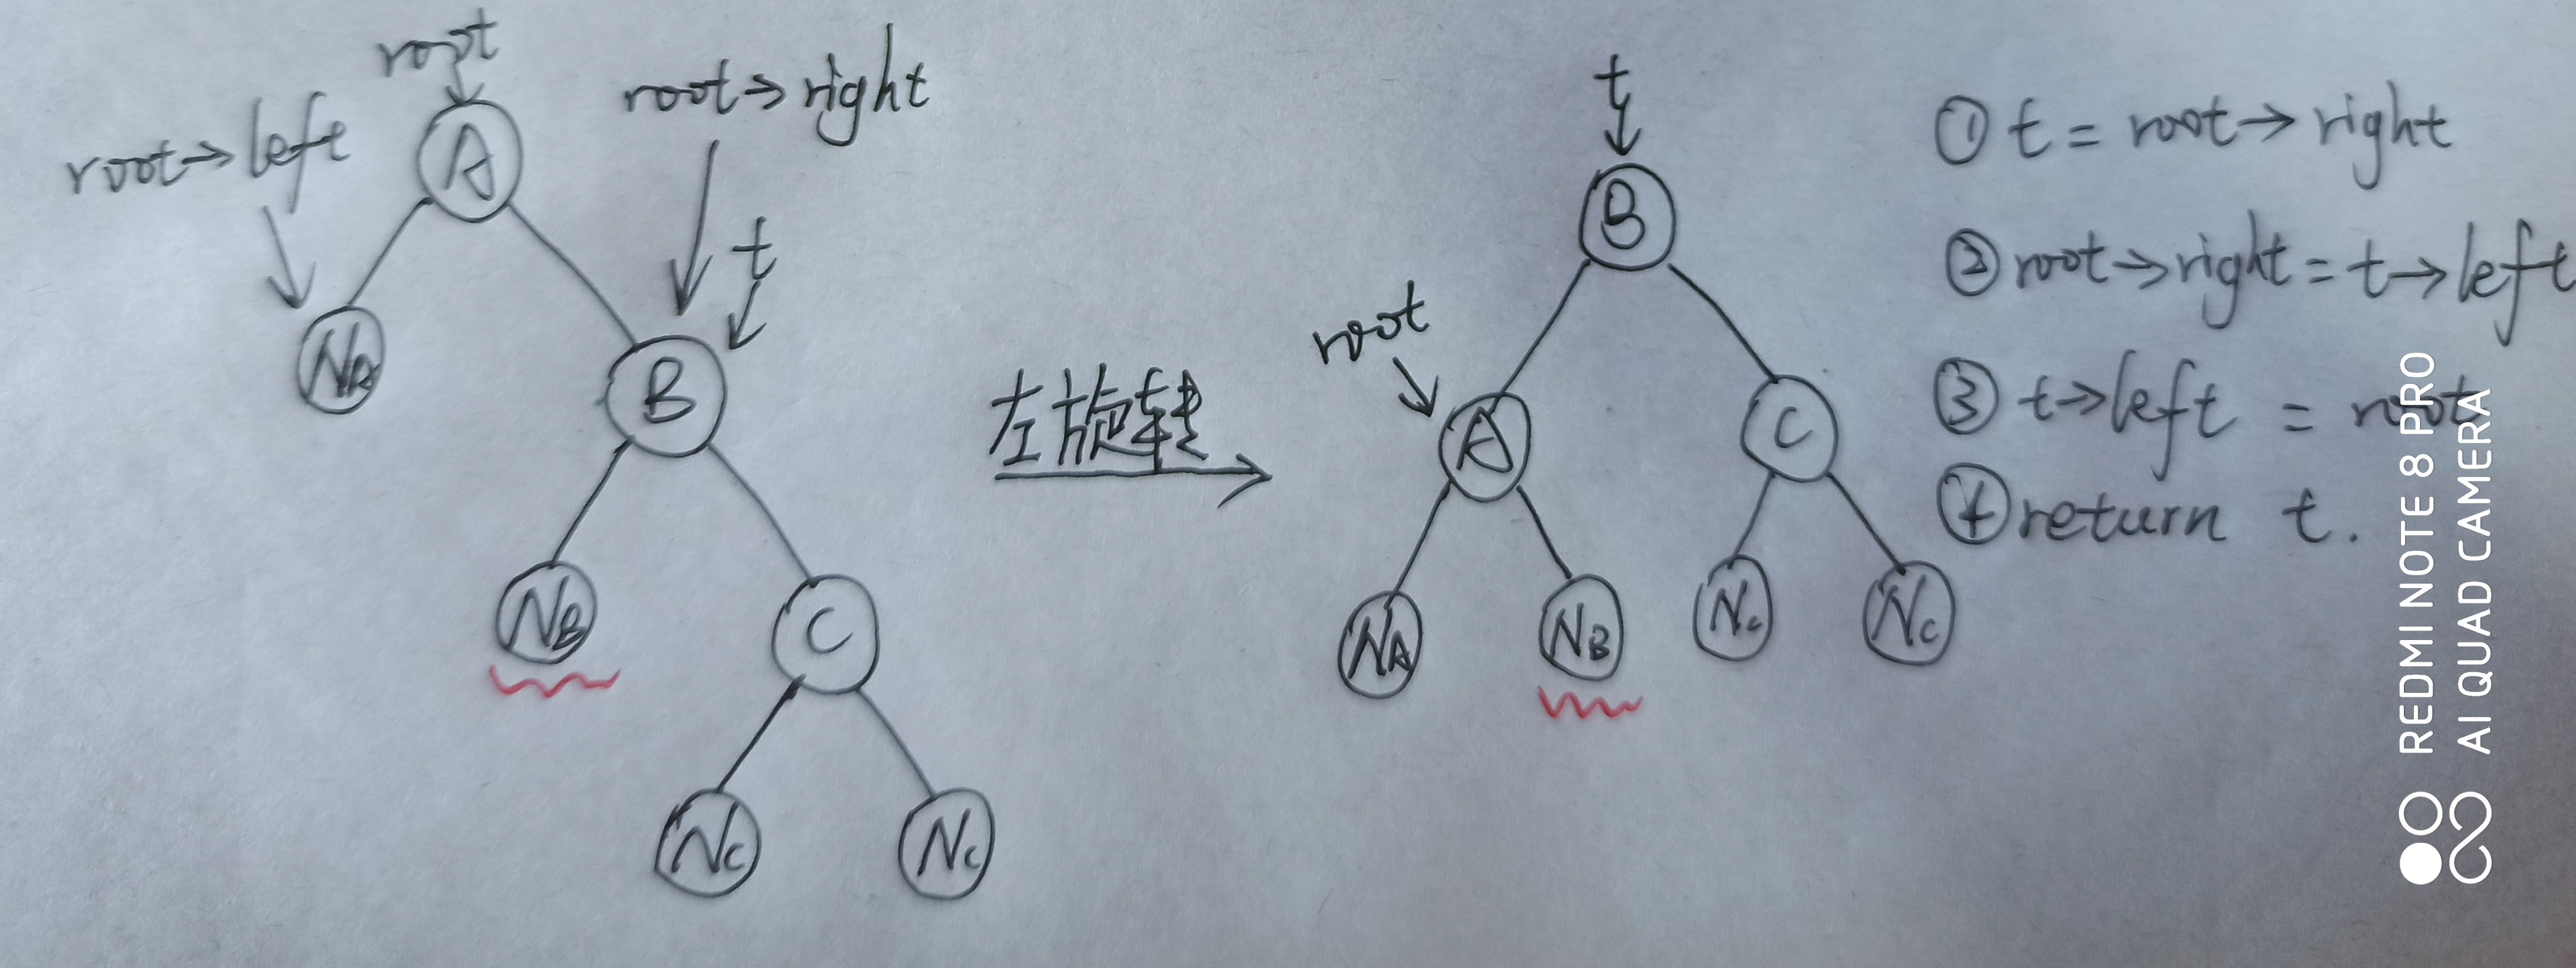 root
root→left
root→right
A
t
NA
B
NB
C
NC
NC
左旋转
t
B
root
A
C
NA
NB
NC
NC
①t=root→right
②root→right=t→left
③t→left = root
④return t.
REDMI NOTE 8 PRO
AI QUAD CAMERA